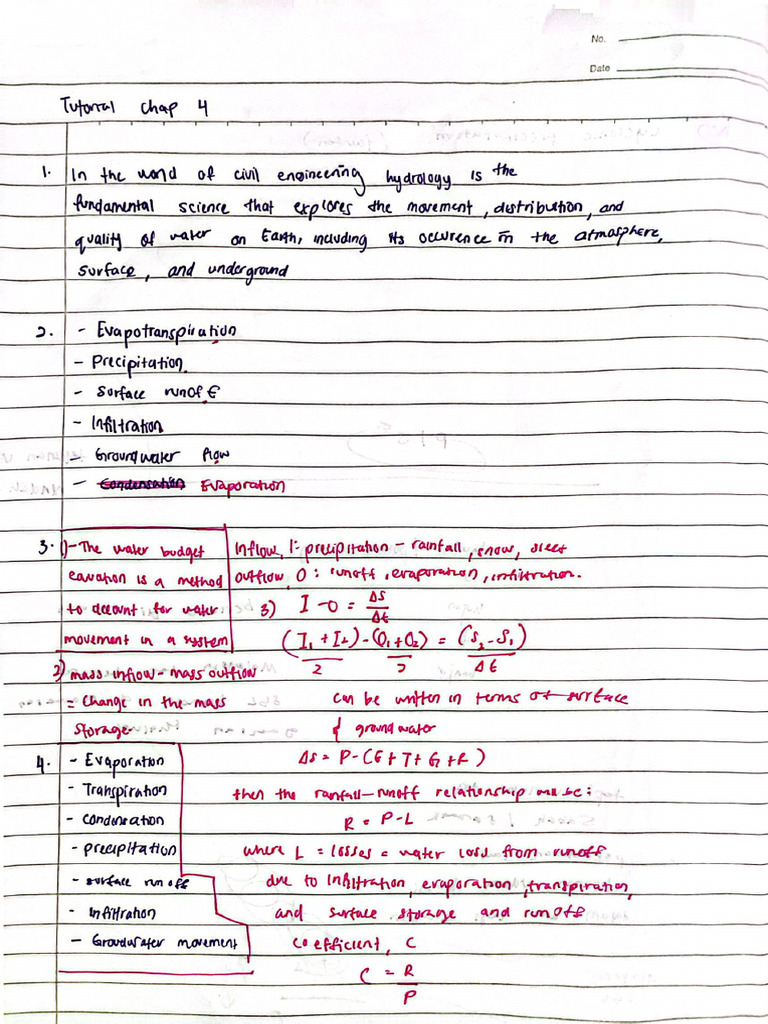 No.
Date
Tutorial chap 4
1. In the world of civil engineering hydrology is the
fundamental science that explores the movement, distribution, and
quality of water on Earth, including its occurence in the atmosphere,
surface, and underground
2. - Evapotranspiration
- Precipitation
- Surface runoff
- Infiltration
- Groundwater flow
- Condensation Evaporation
3. 1) - The water budget
equation is a method
to account for water
movement in a system
2) mass inflow - mass outflow
= Change in the mass
storage
Inflow, I: precipitation - rainfall, snow, sleet
outflow, O : runoff, evaporation, infiltration.
3) I - O = ΔS/Δt
(I1 + I2)/2 - (O1 + O2)/2 = (S2 - S1)/Δt
can be written in terms of surface
& groundwater
ΔS = P - (E + T + G + R)
then the rainfall-runoff relationship must be:
R = P - L
where L = losses = water loss from runoff
due to infiltration, evaporation, transpiration,
and surface storage and runoff
coefficient, C
C = R/P
4. - Evaporation
- Transpiration
- condensation
- precipitation
- surface run off
- infiltration
- Groundwater movement